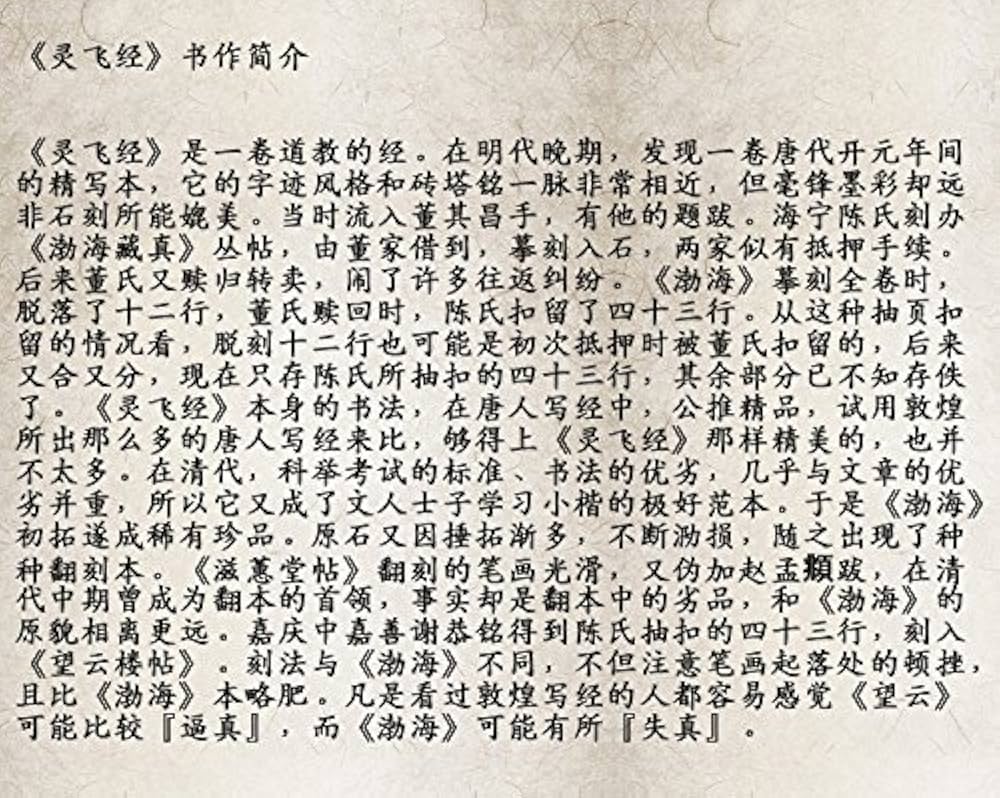 《灵飞经》书作简介
《灵飞经》是一卷道教的经。在明代晚期，发现一卷唐代开元年间
的精写本，它的字迹风格和砖塔铭一脉非常相近，但毫锋墨彩却远
非石刻所能媲美。当时流入董其昌手，有他的题跋。海宁陈氏刻办
《渤海藏真》丛帖，由董家借到，摹刻入石，两家似有抵押手续。
后来董氏又赎归转卖，闹了许多往返纠纷。《渤海》摹刻全卷时，
脱落了十二行，董氏赎回时，陈氏扣留了四十三行。从这种抽页扣
留的情况看，脱刻十二行也可能是初次抵押时被董氏扣留的，后来
又合又分，现在只存陈氏所抽扣的四十三行，其余部分已不知存佚
了。《灵飞经》本身的书法，在唐人写经中，公推精品，试用敦煌
所出那么多的唐人写经来比，够得上《灵飞经》那样精美的，也并
不太多。在清代，科举考试的标准、书法的优劣，几乎与文章的优
劣并重，所以它又成了文人士子学习小楷的极好范本。于是《渤海》
初拓遂成稀有珍品。原石又因捶拓渐多，不断泐损，随之出现了种
种翻刻本。《滋蕙堂帖》翻刻的笔画光滑，又伪加赵孟頫跋，在清
代中期曾成为翻本的首领，事实却是翻本中的劣品，和《渤海》的
原貌相离更远。嘉庆中嘉善谢恭铭得到陈氏抽扣的四十三行，刻入
《望云楼帖》。刻法与《渤海》不同，不但注意笔画起落处的顿挫，
且比《渤海》本略肥。凡是看过敦煌写经的人都容易感觉《望云》
可能比较『逼真』，而《渤海》可能有所『失真』。